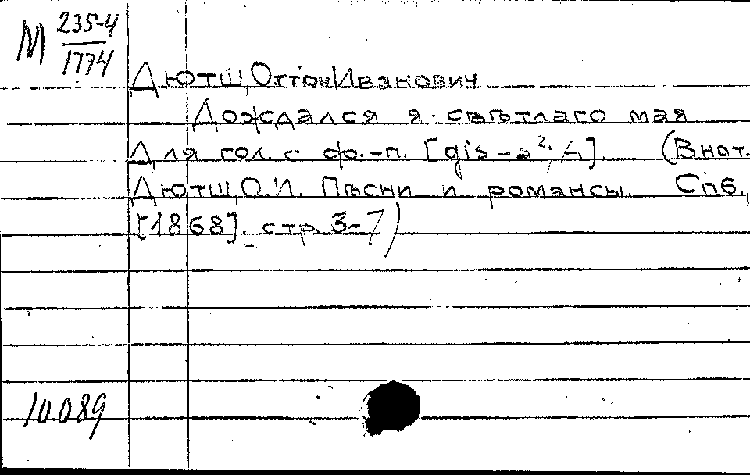 М 235-4
1774
Дютш, Оттон Иванович
Дождался я свѣтлаго мая
Для гол. с ф.-п. [gis-a², A]. (В нот.
Дютш, О.И. Пѣсни и романсы Спб,
[1868]. стр. 3-7)
10.089